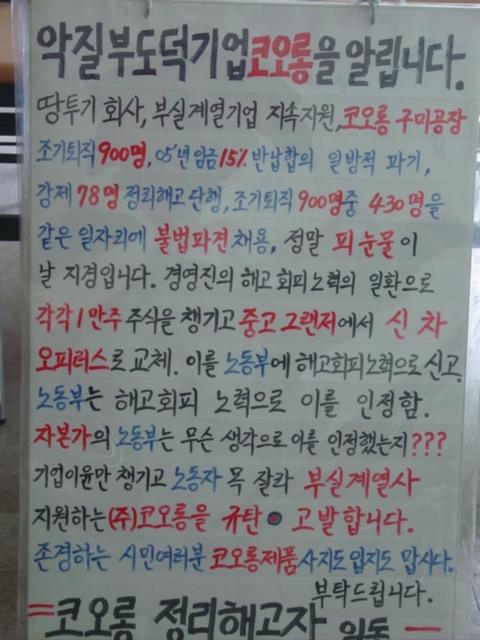 악질부도덕기업코오롱을 알립니다.
땅투기 회사, 부실계열기업 지속지원, 코오롱 구미공장
조기퇴직 900명, 05'년 임금 15% 반납합의 일방적 파기,
강제 78명 정리해고 단행, 조기퇴직 900명중 430명을
같은 일자리에 불법파견채용, 정말 피눈물이
날 지경입니다. 경영진의 해고 회피노력의 일환으로
각각 1만주 주식을 챙기고 중고 그랜저에서 신차
오피러스로 교체. 이를 노동부에 해고회피노력으로 신고.
노동부는 해고회피 노력으로 이를 인정함.
자본가의 노동부는 무슨 생각으로 이를 인정했는지???
기업이윤만 챙기고 노동자 목 잘라 부실계열사
지원하는 (주)코오롱을 규탄 고발합니다.
존경하는 시민여러분 코오롱제품 사지도 입지도 맙시다.
부탁드립니다.
=코오롱 정리해고자 일동